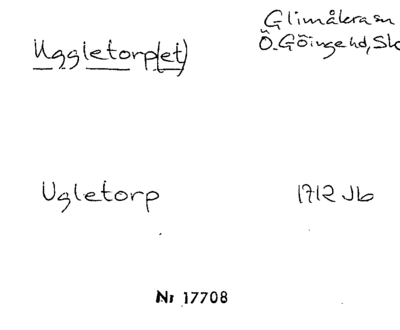 Glimåkra sn
Uggletorp(et)
Ö. Göinge hd, Sk
Ugletorp 1712 Jb
Nr 17708